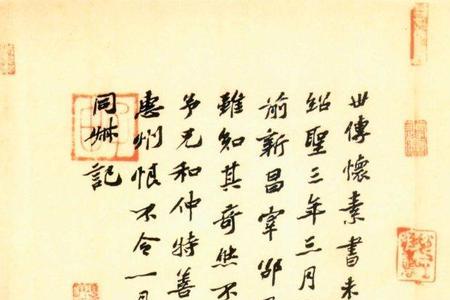 世傳懷素書未
紹聖三年三月
前新昌宰邵
雖知其奇然不
予兄和仲特善
惠州恨不令一見
同叔記